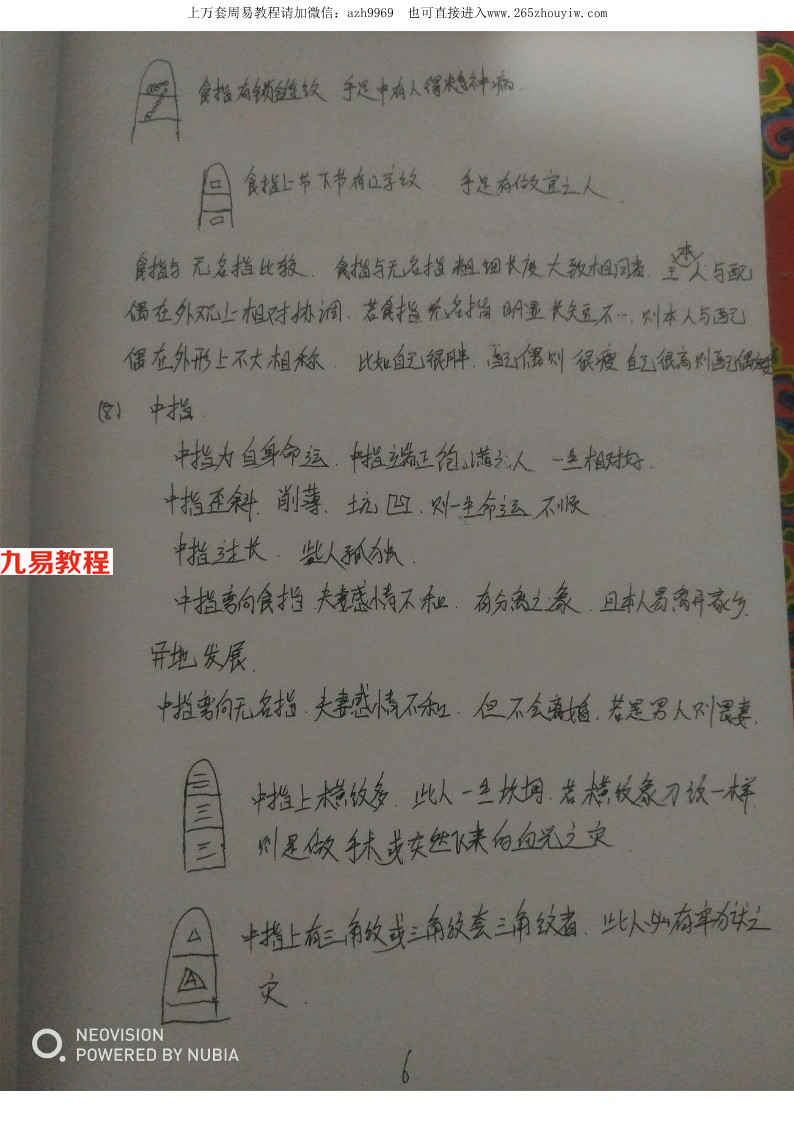 上万套周易教程请加微信：azh9969　也可直接进入www.265zhouyiw.com
食指有锁链纹 手足中有人得精神病.
食指上节下节有口字纹. 手足有做官之人.
食指与无名指比较. 食指与无名指粗细长度大致相同者. 主本人与配
偶在外观上相对协调. 若食指无名指明显长短不一. 则本人与配
偶在外形上不大相称. 比如自己很胖. 配偶则很瘦 自己很高则配偶
(8) 中指.
中指为自身命运. 中指端正饱满之人 一生相对好.
中指歪斜. 削薄. 坑凹. 则一生命运不顺
中指过长. 此人孤独.
中指弯向食指 夫妻感情不和. 有分离之象. 且本人易离开家乡.
异地发展.
中指弯向无名指. 夫妻感情不和. 但不会离婚. 若是男人则畏妻.
中指上横纹多. 此人一生坎坷. 若横纹象刀纹一样
则是做手术或突然飞来的血光之灾
中指上有三角纹或三角纹套三角纹者. 此人必有牢狱之
灾.
九易教程
NEOVISION
POWERED BY NUBIA
6